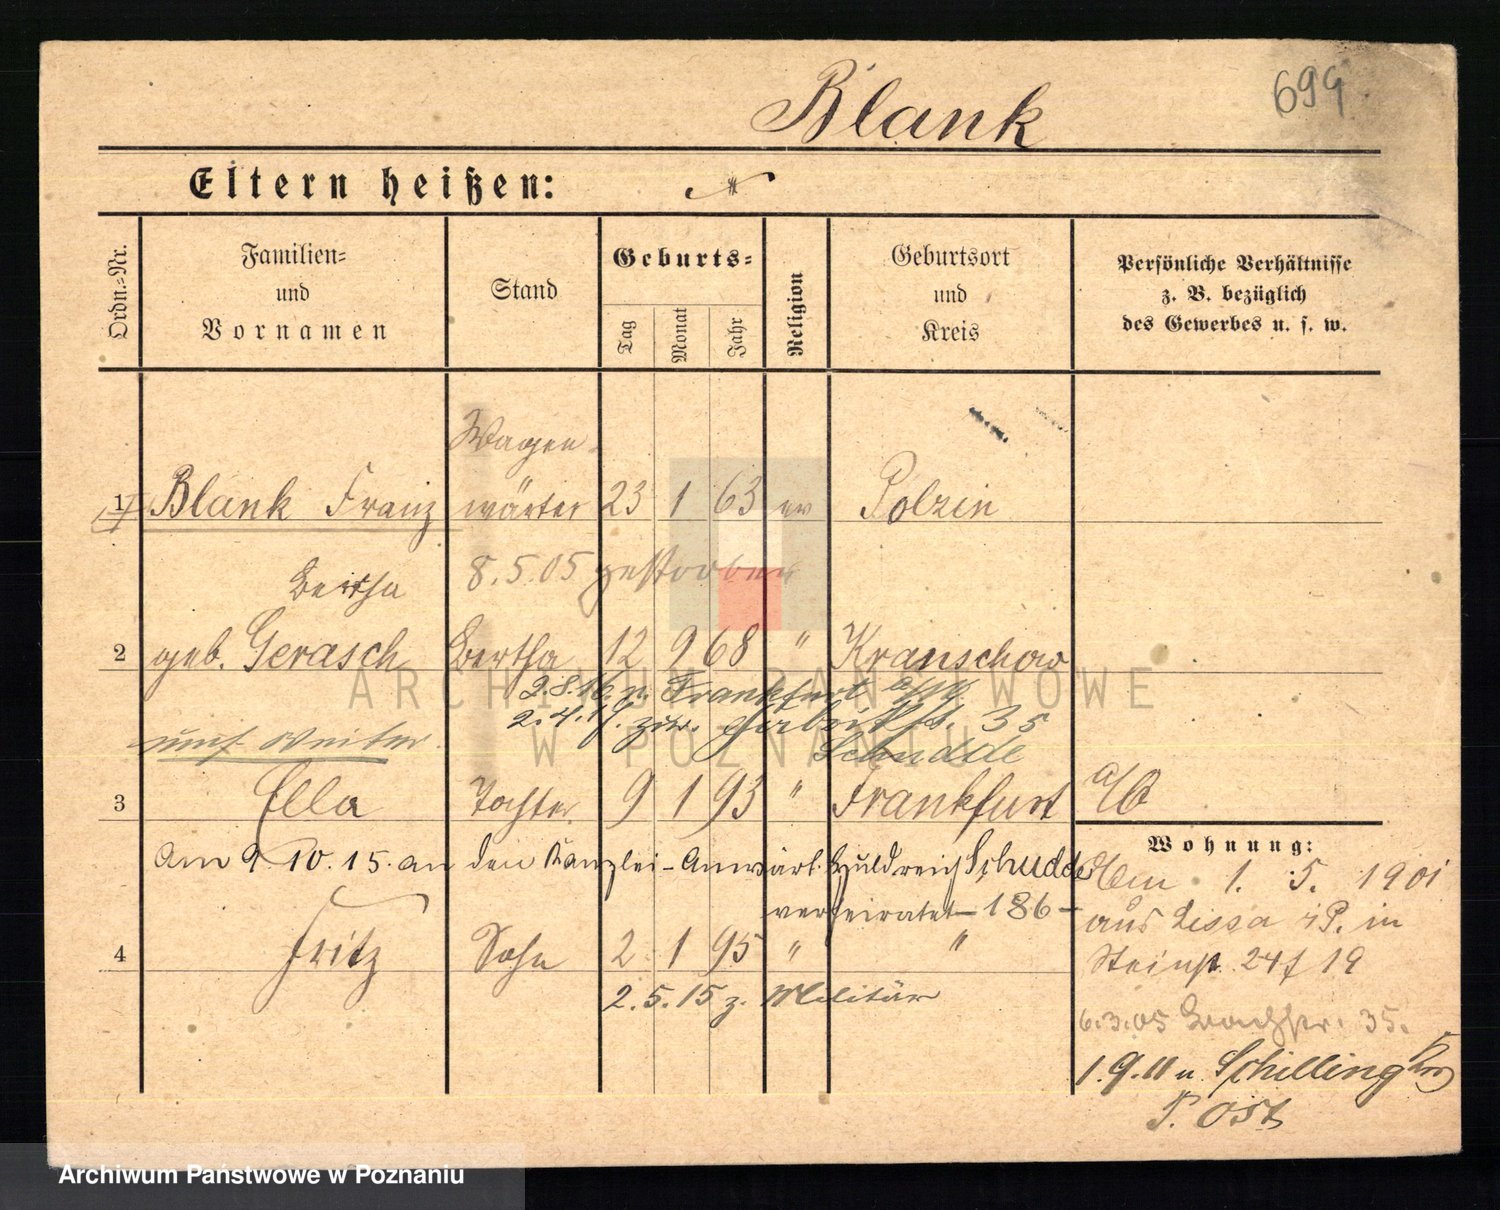 Blank
699
Eltern heißen:
Ordn.-Nr.
Familien=
und
Vornamen
Stand
Geburts=
Tag
Monat
Jahr
Religion
Geburtsort
und
Kreis
Persönliche Verhältnisse
z. B. bezüglich
des Gewerbes u. s. w.
Wagen-
1 Blank Franz wärter 23 1 63 ev Polzin
Bertha 8.5.05 gestorben
2 geb. Gerasch Bertha 12 9 68 " Kranschow
2.8.16 n. Frankfurt a/O.
2.4.17. zur. 35
Schudde
weiter
3 Ella Tochter 9 1 93 " Frankfurt a/O
Am 9.10.15. an den Kanzlei-Anwärt. Huldreich Schudde
verheiratet - 186 -
4 Fritz Sohn 2 1 95 " "
2.5.15 z. Militär
Wohnung:
Am 1. 5. 1901
aus Lissa i/P. in
Steinstr. 24 f 19
6.3.05 35.
1.9.11 n. Schilling
P. Ost
ARCHIWUM PAŃSTWOWE
W POZNANIU
Archiwum Państwowe w Poznaniu